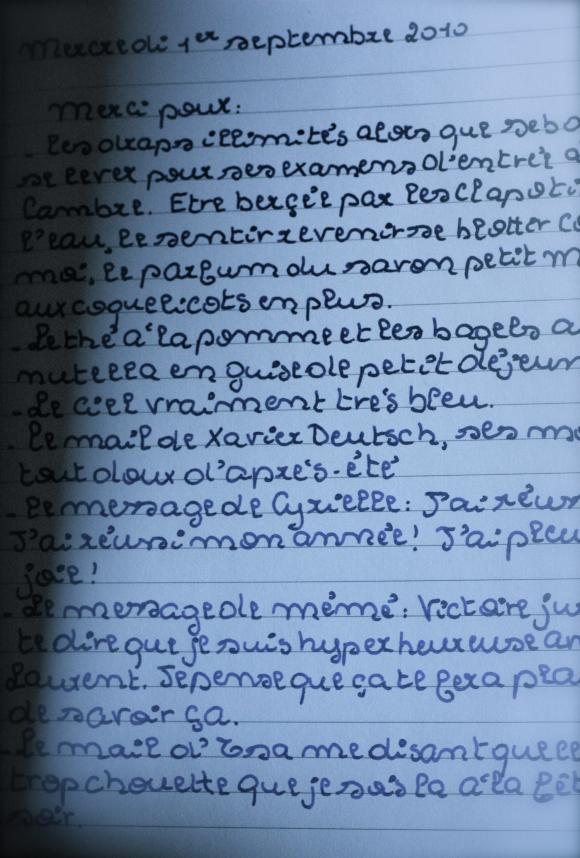 Mercredi 1er septembre 2010
Merci pour:
- Les draps illimités alors que sebo
se lever pour ses examens d'entrée à
Cambre. Etre bercée par les clapoti
l'eau, le sentir revenir se blottir co
moi, le parfum du savon petit m
aux coquelicots en plus.
- Le thé à la pomme et les bagels a
nutella en guise de petit déjeun
- Le ciel vraiment très bleu.
- Le mail de Xavier Deutsch, ses mo
tout doux d'après-été
- Le message de Cyrielle: J'ai réus
J'ai réussi mon année! J'ai pleu
joie!
- Le message de mémé: Victoire ju
te dire que je suis hyper heureuse av
Laurent. Je pense que ça te fera pla
de savoir ça.
- Le mail d' Isa me disant que c
trop chouette que je sois là à la fêt
soir.